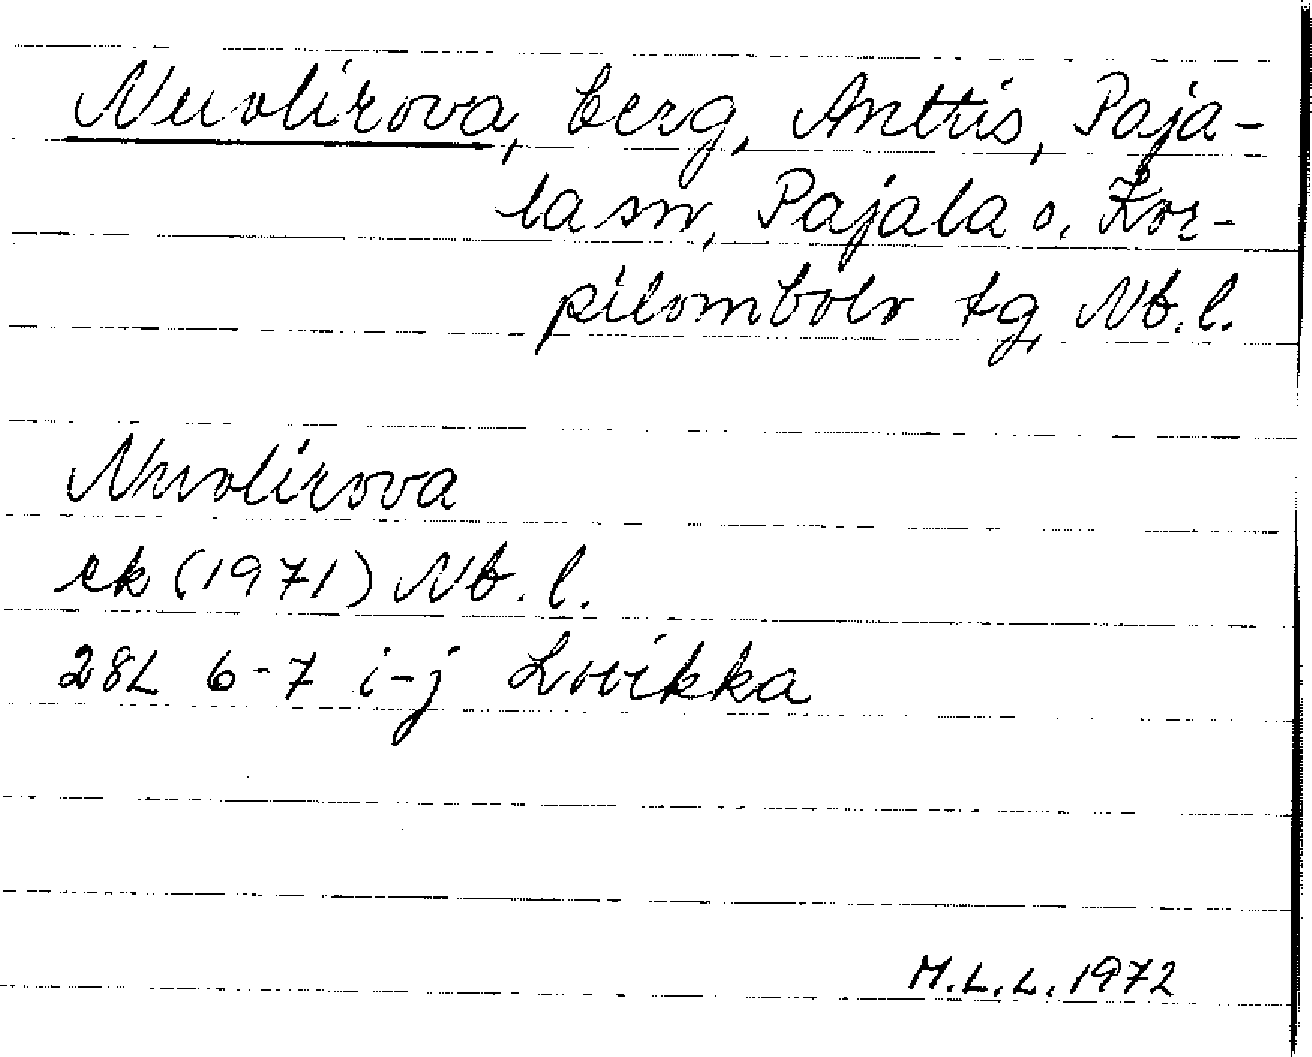 Nuolirova, berg, Anttis, Paja-
la sn, Pajala o. Kor-
pilombolo tg, Nb. l.
Nuolirova
ek (1971) Nb. l.
28L 6-7 i-j Lovikka
M.L.L. 1972